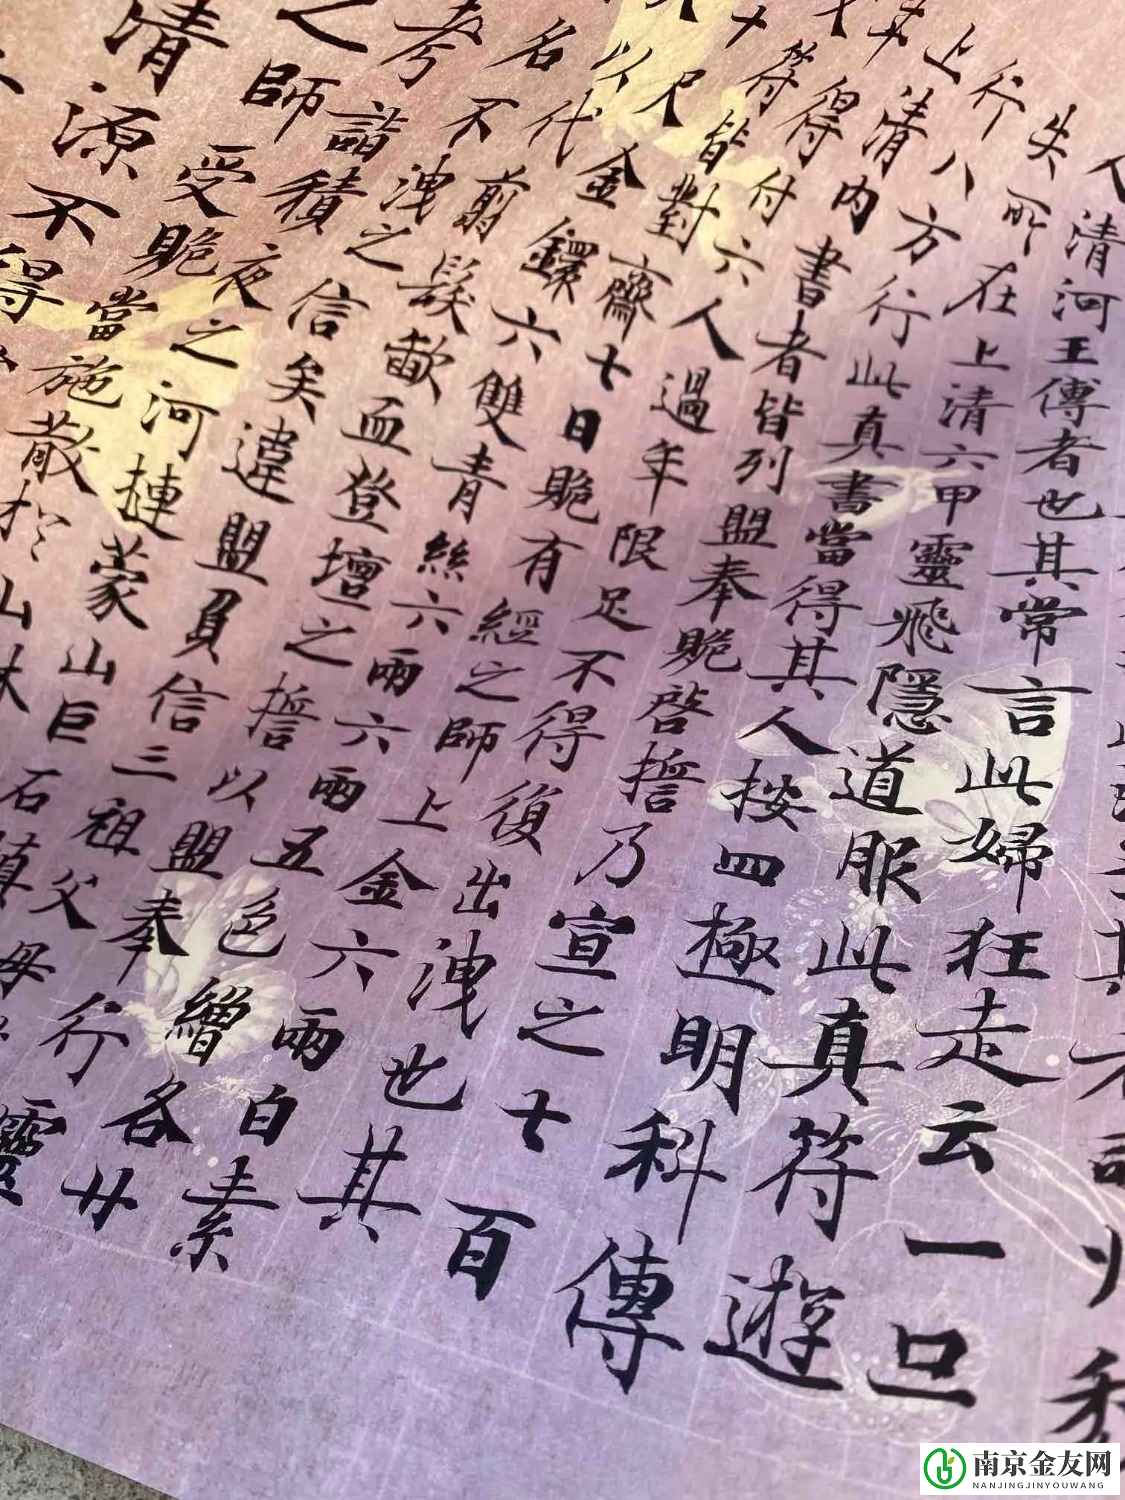 人清河王傳者也其常言此婦狂走云一旦
失所在上清六甲靈飛隱道服此真符遊
行八方行此真書當得其人按四極明科傳
上清內書者皆列盟奉贉啓誓乃宣之七百
得付六人過年限足不得復出洩也其
符皆對齋七日贉有經之師上金六兩白素
尺金鐶六雙青絲六兩五色繒廿
以代翦髮歃血登壇之誓以盟奉行各
名不洩之信矣違盟負信三祖父母
考詣積夜之河摙蒙山巨石
之師受贉當施散於山林
清源不得
南京金友网
NANJINGJINYOUWANG